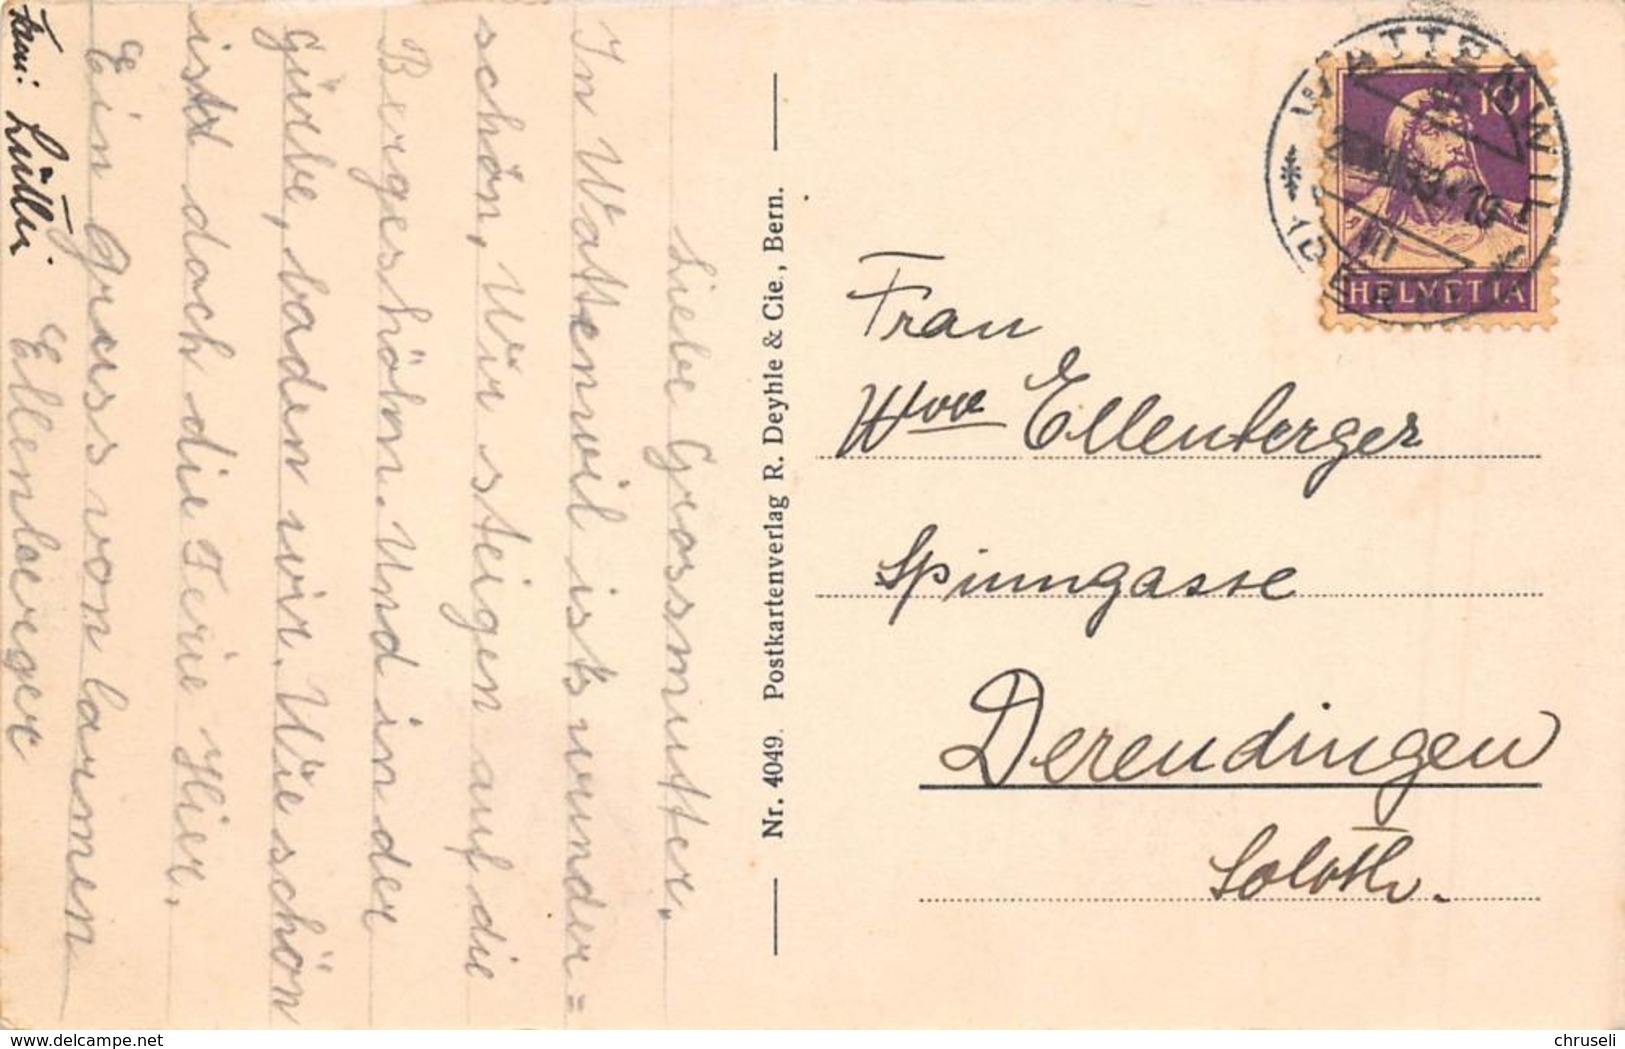 Liebe Grossmutter.
In Wattenwil ists wunder=
schön, Wir steigen auf die
Bergeshöhn. Und in der
Gürbe, baden wir. Wie schön
ist doch die Ferie Hier.
Ein Gruss von
Ellenberger
Fami: Lüthi
Nr. 4049. Postkartenverlag R. Deyhle & Cie., Bern.
WATTENWIL
(BERN)
10
HELVETIA
Frau
Wwe Ellenberger
Spinngasse
Derendingen
Soloth.
delcampe.net
chruseli